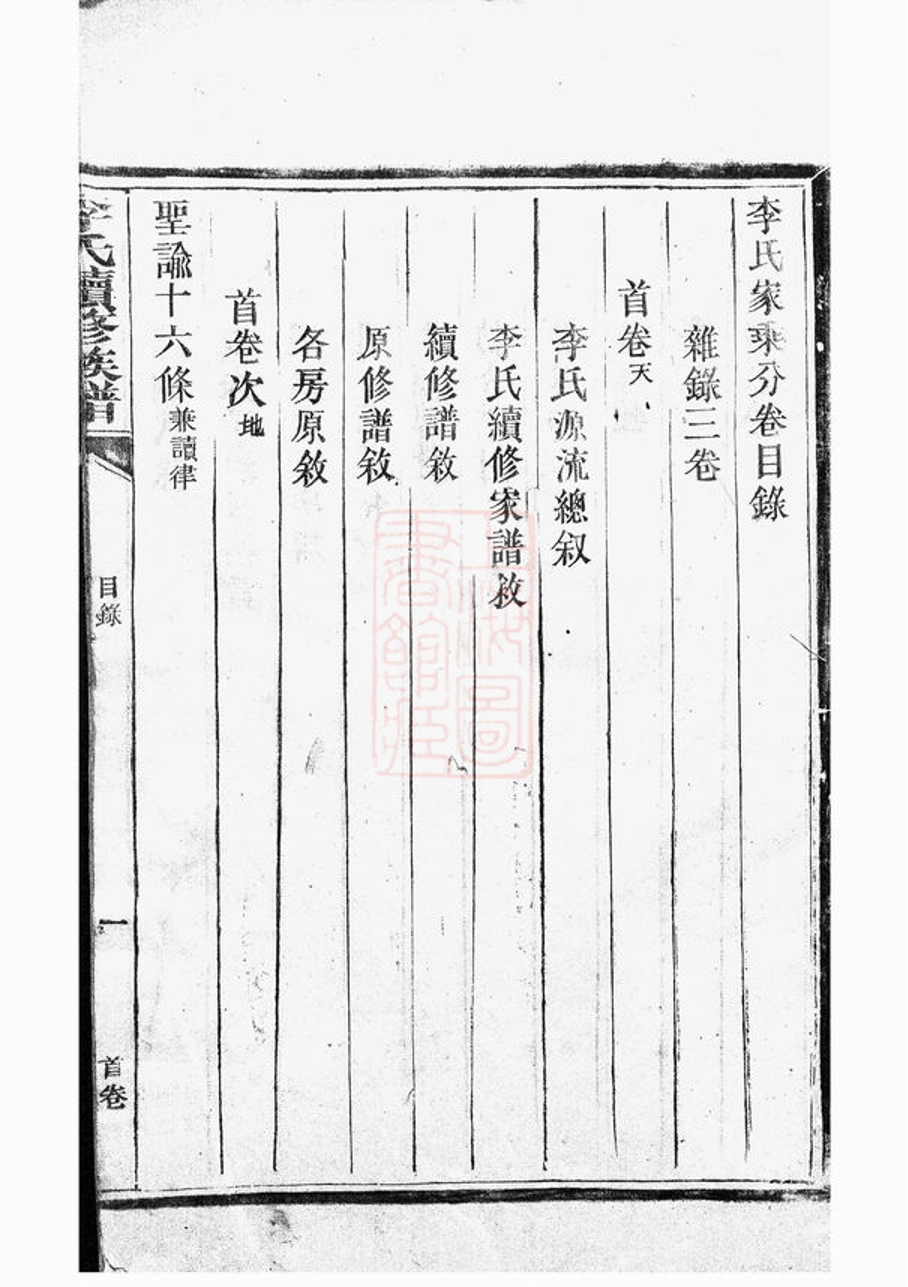 李氏家乘分卷目錄
雜錄三卷
首卷天
李氏源流總叙
李氏續修家譜敘
續修譜敘
原修譜敘
各房原敘
首卷次地
聖諭十六條兼讀律
李氏續修族譜
目錄
一
首卷
上海圖書館藏